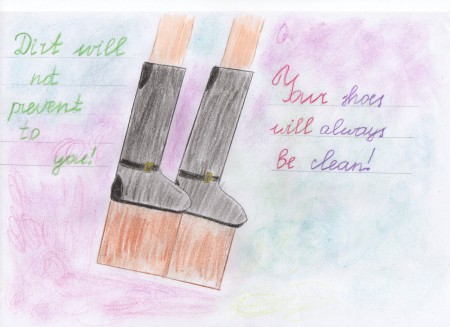 Dirt will
not
prevent
to
you!
Your shoes
will always
be clean!